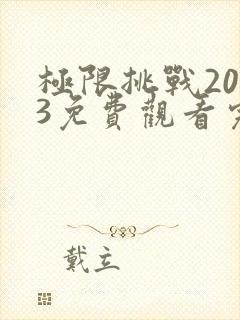 極限挑戰20
3免費觀看
戴立